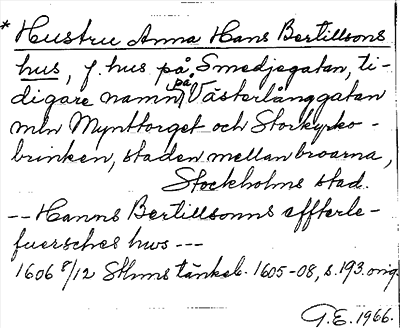 * Hustru Anna Hans Bertillsons
hus, f. hus på Smedjegatan, ti-
digare namn på Västerlånggatan
mln Mynttorget och Storkyrko-
brinken, staden mellan broarna,
Stockholms stad.
-- Hanns Bertillsonns effterle-
fuersches hws ---
1606 8/12 Sthms tänkeb. 1605-08, s. 193. orig.
G.E. 1966.